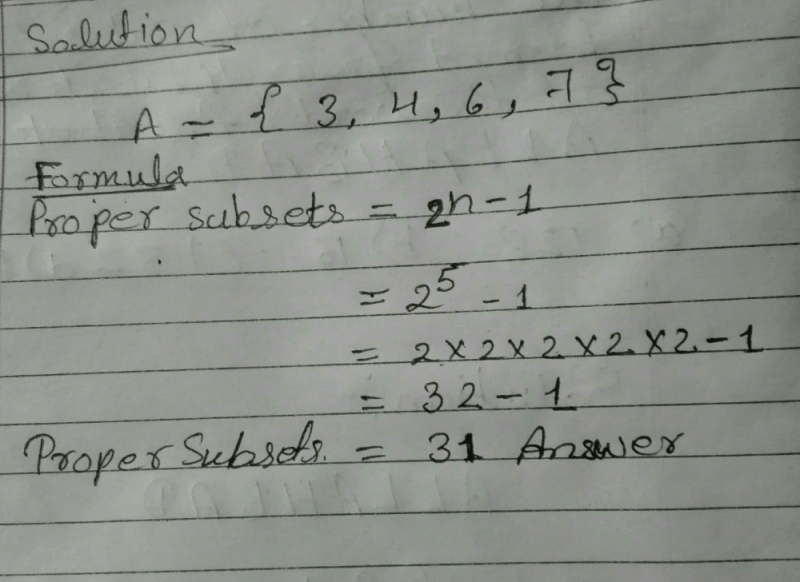 Solution
A = { 3, 4, 6, 7 }
Formula
Proper subsets = 2n - 1
= 2⁵ - 1
= 2 × 2 × 2 × 2 × 2 - 1
= 32 - 1
Proper Subsets. = 31 Answer